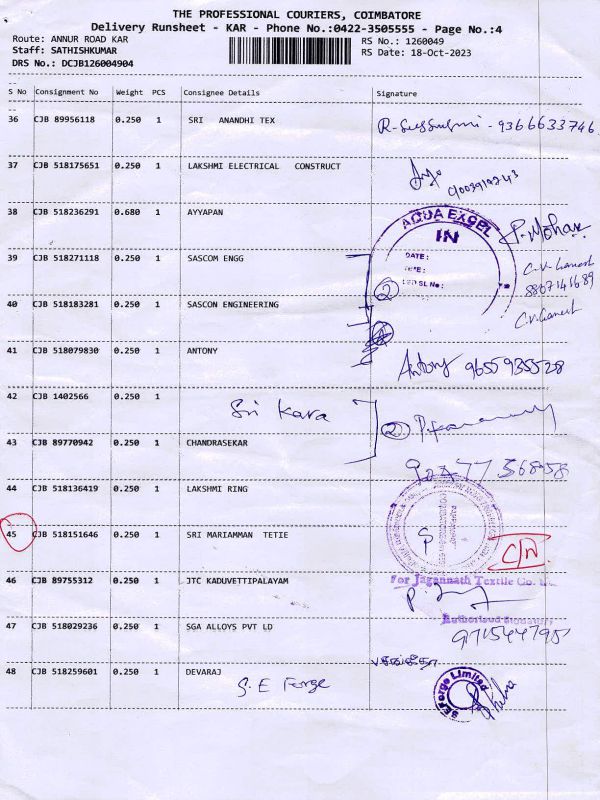 THE PROFESSIONAL COURIERS, COIMBATORE
Delivery Runsheet - KAR - Phone No.:0422-3505555 - Page No.:4
Route: ANNUR ROAD KAR
RS No.: 1260049
Staff: SATHISHKUMAR
RS Date: 18-Oct-2023
DRS No.: DCJB126004904
S No Consignment No Weight PCS Consignee Details Signature
36 CJB 89956118 0.250 1 SRI ANANDHI TEX
9366633746
37 CJB 518175651 0.250 1 LAKSHMI ELECTRICAL CONSTRUCT
38 CJB 518236291 0.680 1 AYYAPAN
AQUA EXCEL
IN
P. Mohan
39 CJB 518271118 0.250 1 SASCOM ENGG
DATE :
TIME :
2
C.V. Ganesh
40 CJB 518183281 0.250 1 SASCON ENGINEERING
C.V. Ganesh
41 CJB 518079830 0.250 1 ANTONY
Antony 9655935528
42 CJB 1402566 0.250 1
Sri Kara
2
43 CJB 89770942 0.250 1 CHANDRASEKAR
44 CJB 518136419 0.250 1 LAKSHMI RING
45 CJB 518151646 0.250 1 SRI MARIAMMAN TETIE
C/N
46 CJB 89755312 0.250 1 JTC KADUVETTIPALAYAM
For Jagannath Textile Co.
Authorised Signatory
47 CJB 518029236 0.250 1 SGA ALLOYS PVT LD
48 CJB 518259601 0.250 1 DEVARAJ
S.E Forge
SE Forge Limited